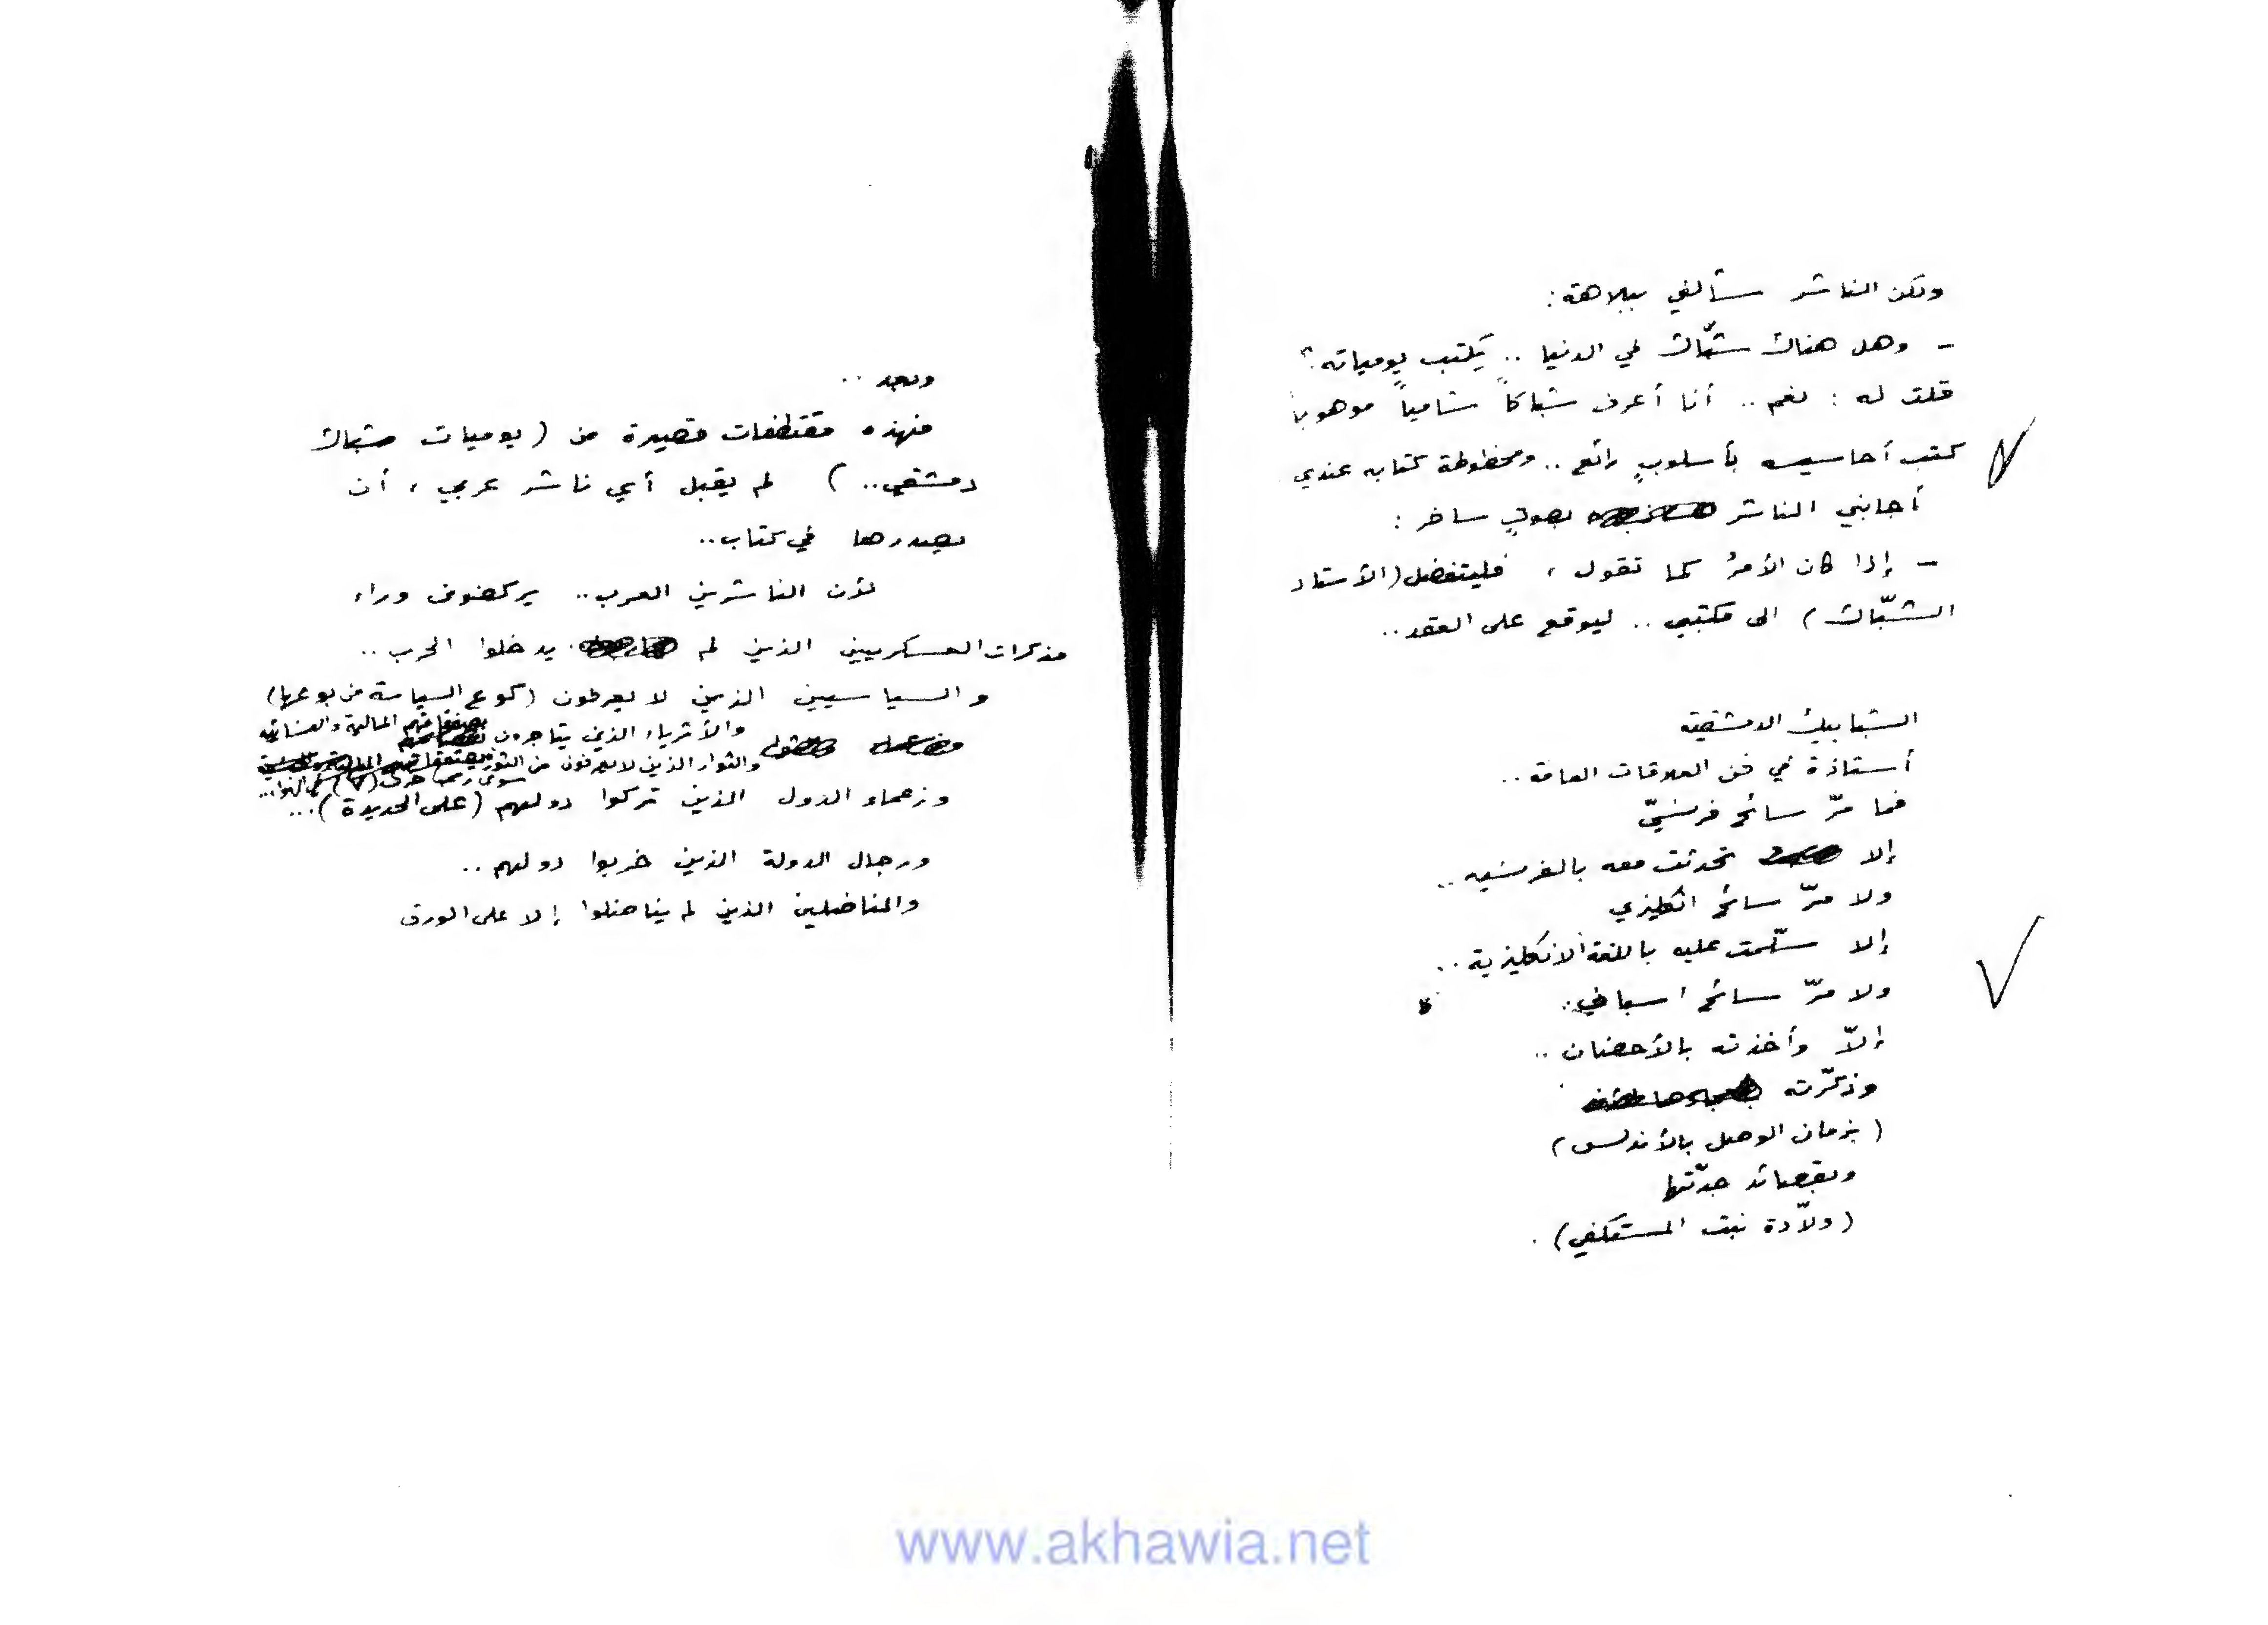 ولكن الناشر سألني ببلاهة:
- وهل هناك شبّاك في الدنيا .. يكتب يومياته؟
قلت له : نعم .. أنا أعرف شباكاً شامياً موهوباً
كتب أحاسيسه بأسلوبٍ رائع .. ومخطوطة كتابه عندي
أجابني الناشر بصوتٍ ساخر :
- إذا كان الأمرُ كما تقول ، فليتفضل (الأستاذ
الشبّاك) الى مكتبي .. ليوقع على العقد ..
الشبابيك الدمشقية
أستاذة في فن العلاقات العامة ..
فما مرّ سائح فرنسيّ
إلا تحدثت معه بالفرنسية ..
ولا مرّ سائح انكليزي
إلا سلّمت عليه باللغة الانكليزية ..
ولا مرّ سائح اسباني.
إلاّ وأخذته بالأحضان ..
وذكّرته
(بزمان الوصل بالأندلس)
وبقصائد جدّتها
(ولاّدة بنت المستكفي) .
وبعد ..
فهذه مقتطفات قصيرة من (يوميات شباك
دمشقي..) لم يقبل أي ناشر عربي ، أن
يصدرها في كتاب ..
لأن الناشرين العرب .. يركضون وراء
مذكرات العسكريين الذين لم يدخلوا الحرب ..
والسياسيين الذين لا يعرفون (كوع السياسة من بوعها)
والأثرياء الذين يتاجرون بصفقاتهم المالية والنسائية
والثوار الذين لا يعرفون من الثورة
سوى رسم حرف (٧)
وزعماء الدول الذين تركوا دولهم (على الحديدة) ...
ورجال الدولة الذين خربوا دولهم ..
والمناضلين الذين لم يناضلوا إلا على الورق
www.akhawia.net